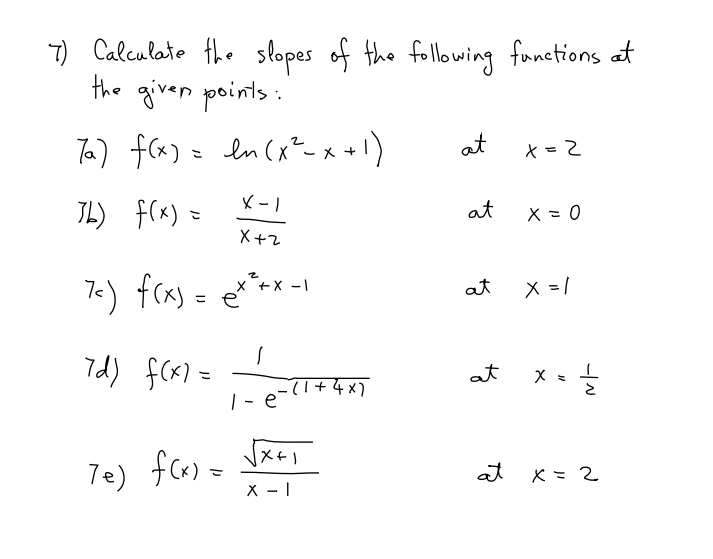 7) Calculate the slopes of the following functions at
the given points:
7a) f(x) = ln(x² - x + 1) at x = 2
7b) f(x) = (x-1)/(x+2) at x = 0
7c) f(x) = e^(x²+x-1) at x = 1
7d) f(x) = 1/(1 - e^(-(1+4x))) at x = 1/2
7e) f(x) = √(x+1)/(x-1) at x = 2